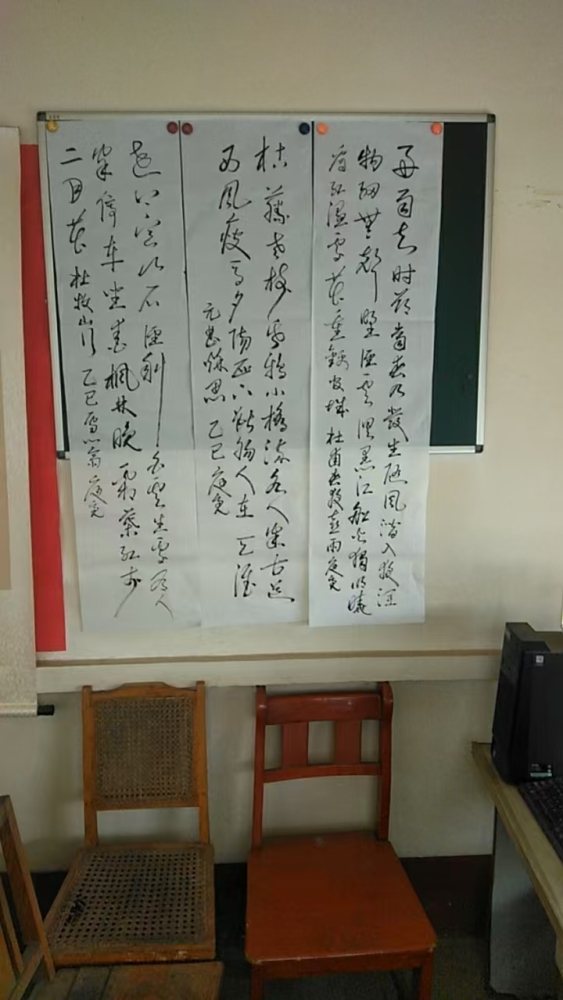 好雨知时节當春乃發生随風潛入夜润
物细無声野径雲俱黑江船火独明晓
看红湿處花重錦官城 杜甫春夜喜雨
枯藤老树昏鸦小橋流水人家古道
西風瘦马夕陽西下断肠人在天涯
元曲秋思 乙巳
远上寒山石径斜白雲生處有人
家停车坐爱楓林晚霜葉红於
二月花 杜牧山行 乙巳